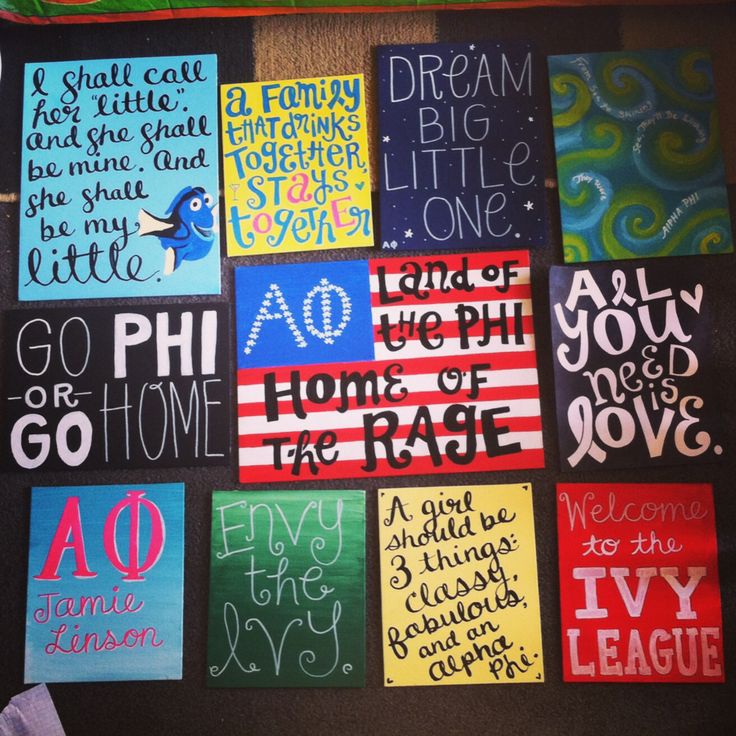 I shall call
her "little".
And she shall
be mine. And
she shall
be my
little.
a FamiLy
THAT drinks
TOgeTHer,
STAYS
toGetHEr
DReam
BIG
LITTLE
ONE.
AΦ
From Sea to Shining
Sea They'll Be Longing
They Were
ALPHA PHI
GO PHI
-OR-
GO HOME
AΦ
LAnd of
the PHI
Home of
The RAGE
ALL
YOU
NeeD
is
LOVE.
AΦ
Jamie
Linson
Envy
the
Ivy
A girl
should be
3 things:
classy,
fabulous,
and an
Alpha
Phi.
Welcome
to the
IVY
LEAGUE